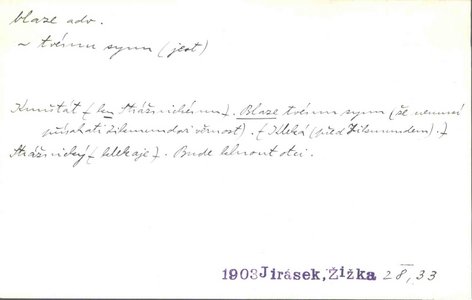 blaze adv.
~ tvému synu (jest)
Kunštát {ku Strážnickému}. Blaze tvému synu (že nemusí
přísahati Zikmundovi věrnost). {Kleká (před Zikmundem).}
Strážnický {klekaje}. Bude klnout otci.
1903 Jirásek, Žižka 28, 33